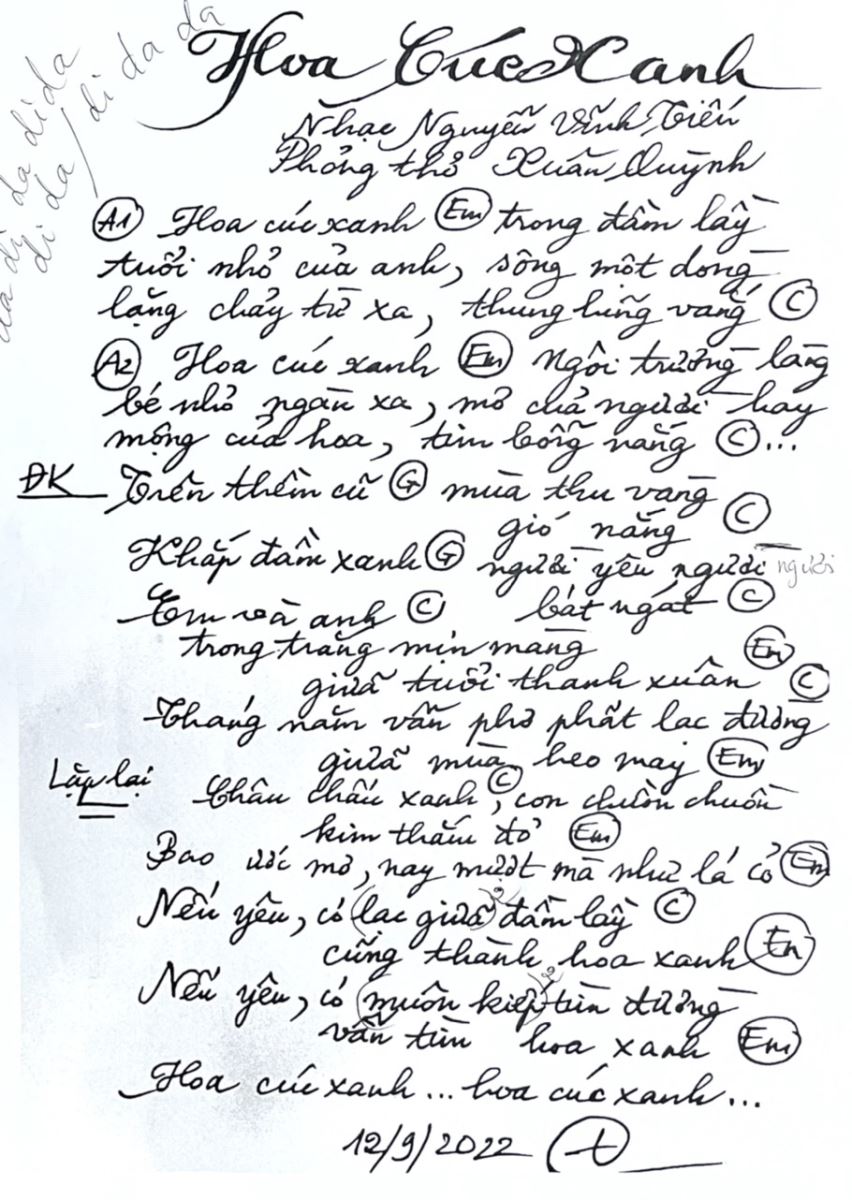 da di da di da
di da di da da
Hoa Cúc Xanh
Nhạc Nguyễn Vĩnh Tiến
Phỏng thơ Xuân Quỳnh
A1 Hoa cúc xanh Em trong đầm lầy
tuổi nhỏ của anh, sông một dòng
lặng chảy từ xa, thung lũng vắng C
A2 Hoa cúc xanh Em Ngôi trường làng
bé nhỏ ngàn xa, mơ của người hay
mộng của hoa, tím bỗng nắng C...
ĐK Trên thềm cũ G mùa thu vàng
gió nắng C
Khắp đầm xanh G người yêu người người
Em và anh C bát ngát C
trong trắng mịn màng Em
giữa tuổi thanh xuân C
Tháng năm vẫn phơ phất lạc đường
giữa mùa heo may Em
Lặp lại Châu chấu xanh C, con chuồn chuồn
kim thắm đỏ Em
Bao ước mơ, nay mượt mà như lá cỏ Em
Nếu yêu, có (lạc giữa) đầm lầy C
cũng thành hoa xanh Em
Nếu yêu, có (muôn kiếp) tìm đường
vẫn tìm hoa xanh Em
Hoa cúc xanh... hoa cúc xanh...
12/9/2022 t